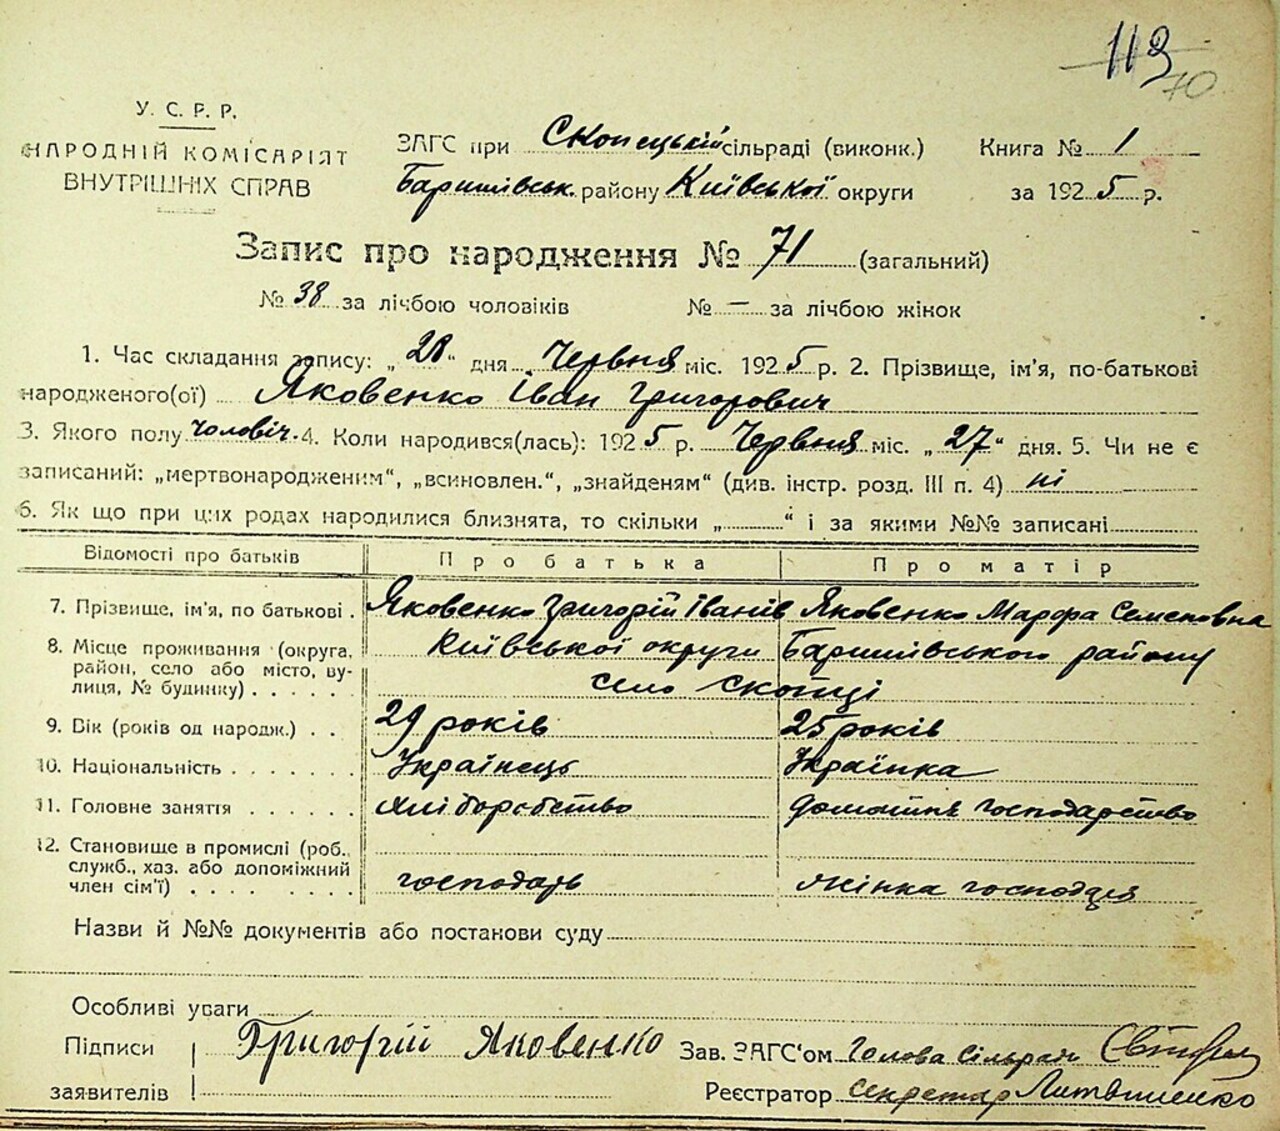 113
70
У. С. Р. Р.
НАРОДНІЙ КОМІСАРІЯТ
ВНУТРІШНІХ СПРАВ
ЗАГС при Скопецькій сільраді (виконк.) Книга № 1
Баришівськ. району Київської округи за 1925 р.
Запис про народження № 71 (загальний)
№ 38 за лічбою чоловіків № — за лічбою жінок
1. Час складання запису: „28“ дня Червня міс. 1925 р. 2. Прізвище, ім'я, по-батькові
народженого(ої) Яковенко Іван Григорович
3. Якого полу чоловіч. 4. Коли народився(лась): 1925 р. Червня міс. „27“ дня. 5. Чи не є
записаний: „мертвонародженим“, „всиновлен.“, „знайденям“ (див. інстр. розд. III п. 4) ні
6. Як що при цих родах народилися близнята, то скільки „ “ і за якими №№ записані
Відомості про батьків Про батька Про матір
7. Прізвище, ім'я, по батькові . Яковенко Григорій Іванів Яковенко Марфа Семеновна
8. Місце проживання (округа, Київської округи Баришівського району
район, село або місто, ву-
лиця, № будинку) . . . . . село Скопці
9. Вік (років од народж.) . . 29 років 25 років
10. Національність . . . . . . Українець Українка
11. Головне заняття . . . . . хліборобство домашнє господарство
12. Становище в промислі (роб.,
служб., хаз. або допоміжний
член сім'ї) . . . . . . господарь жінка господаря
Назви й №№ документів або постанови суду
Особливі уваги
Підписи Григорій Яковенко Зав. ЗАГС'ом Голова Сільради
заявителів Реєстратор секретар Литвиненко